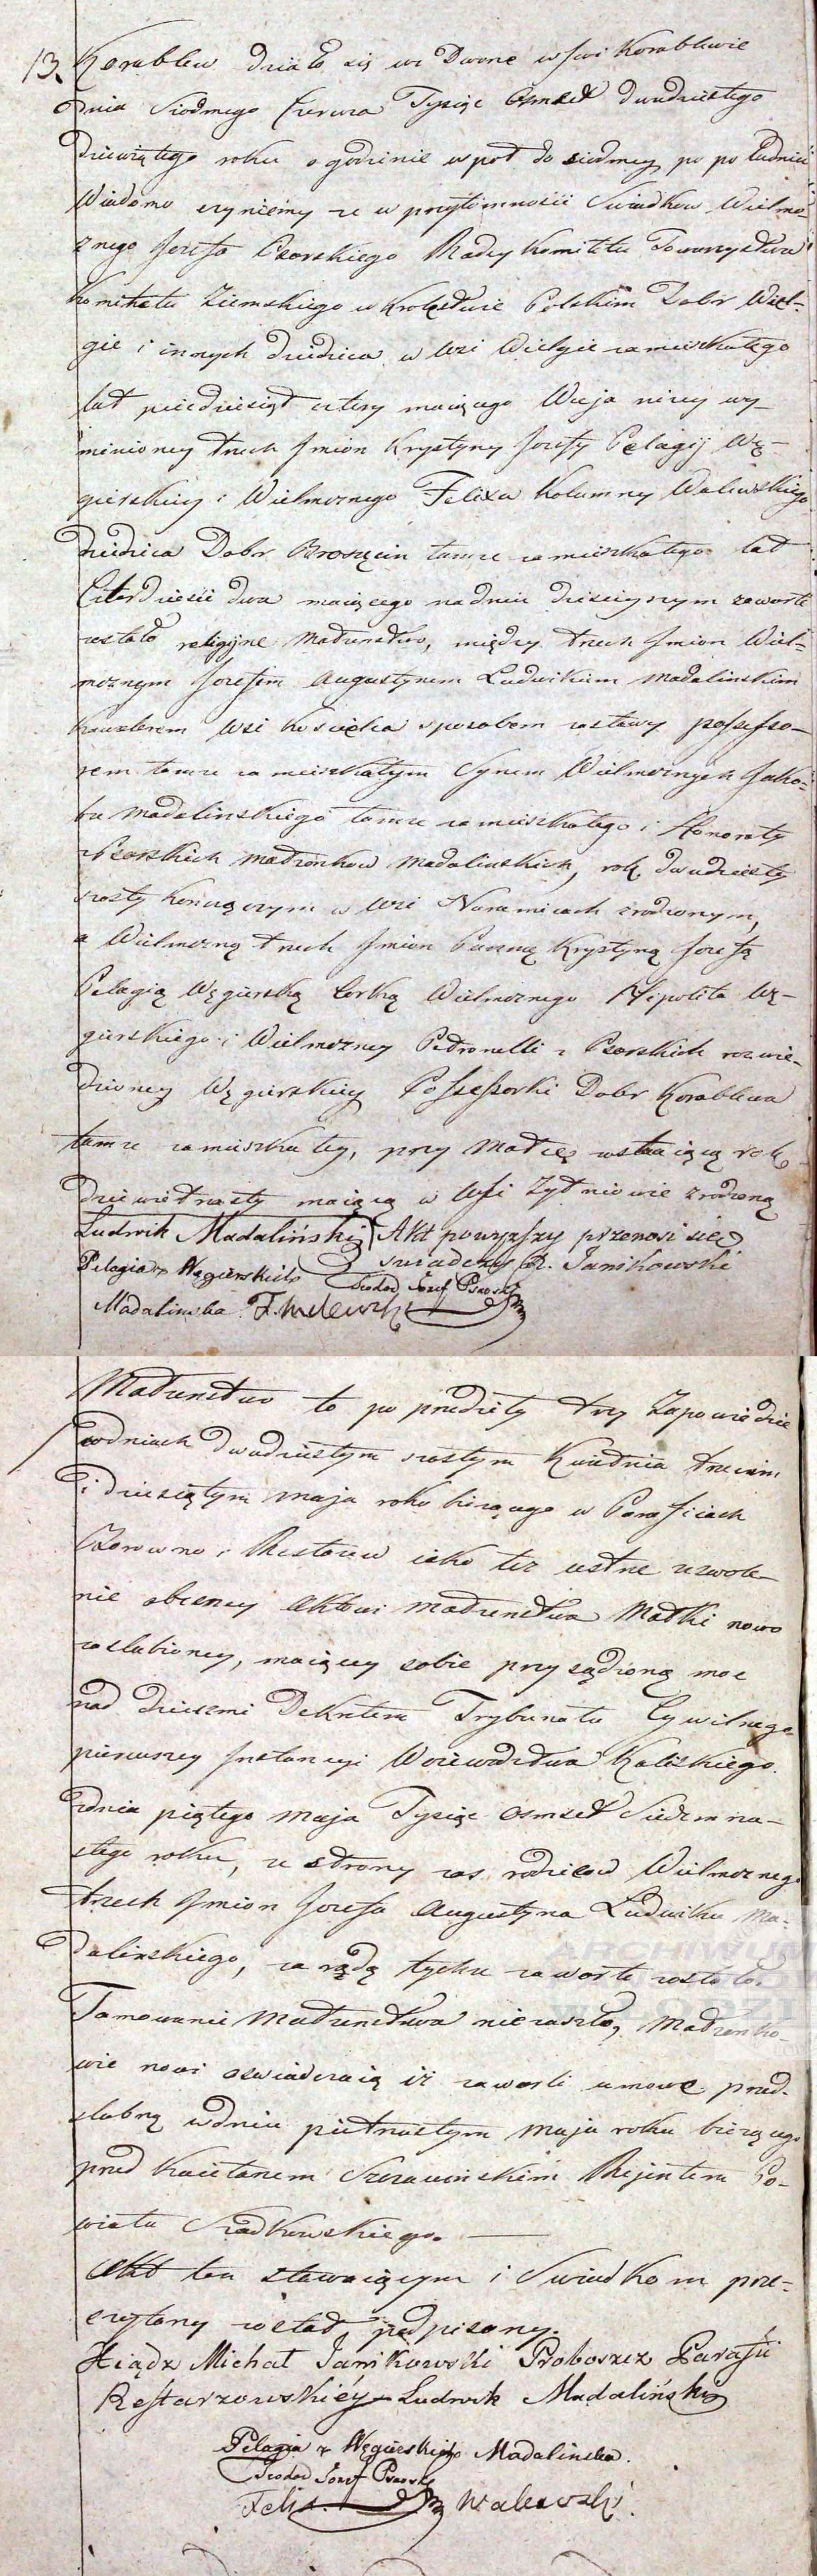 13. Korablew działo się we Dworze wsi Korablewie
dnia Siodmego Czerwca Tysiąc Osmset dwudziestego
dziewiątego roku o godzinie w poł do siodmey po południu
Wiadomo czyniemy że w przytomności Świadkow Wielmo-
żnego Jozefa Psarskiego Radcy Komitetu Towarzystwa
Komitetu Ziemskiego w Krolestwie Polskim Dobr Wiel-
gie i innych dziedzica w wsi Wielgie zamieszkałego
lat pięcdziesiąt cztery maiącego Wuja niżey wy-
mienioney trzech Imion Krystyny Jozefy Pelagij Wę-
gierskiey i Wielmożnego Felixa Kolumny Walewskiego
dziedzica Dobr Broszęcin tamże zamieszkałego lat
Czterdziesci dwa maiącego na dniu dzisieyszym zawarte
zostało religijne Małżenstwo, między trzech Imion Wiel-
możnym Jozefem Augustynem Ludwikiem Madalinskim
Kawalerem wsi Kosciełka sposobem zastawy possesso-
rem tamże zamieszkałym Synem Wielmożnych Jako-
ba Madalinskiego tamże zamieszkałego i Honoraty
z Psarskich małżonkow Madalinskich, rok dwudziesty
szosty konczącym w wsi Naramicach zrodzonym,
a Wielmożną trzech Imion Panną Krystyną Jozefą
Pelagią Węgierską Corką Wielmożnego Hipolita Wę-
gierskiego i Wielmożney Petronelli z Psarskich rozwie-
dzioney Węgierskiey Possessorki Dobr Korablewa
tamże zamieszkałey, przy Matce zostaiącą rok
dziewiętnasty maiącą w wsi Żytniowie zrodzoną
Ludwik Madaliński Akt powyższy przenosi się
świadczy X. Janikowski
Pelagia z Węgierskich Teodor Jozef Psarski
Madalinska F. Walewski
Małżenstwo to po przedziły trzy Zapowiedzie
w dniach dwudziestym szostym Kwietnia trzecim
i dziesiątym Maja roku bieżącego w Parafiach
Bzorowno i Restarzew iako też ustne zezwole-
nie obecney Aktowi małżenstwa Matki nowo
zaslubioney, maiącey sobie przysądzoną moc
nad dziecmi Dekretem Trybunału Cywilnego
pierwszey Instancyi Wojewodztwa Kaliskiego
z dnia piątego Maja Tysiąc Osmset Siedmna-
stego roku, ze strony zas rodzicow Wielmożnego
trzech Imion Jozefa Augustyna Ludwika Ma-
dalinskiego, za radą tychże zawarte zostało.
Tamowanie Małżenstwa nie zaszło, Małżonko-
wie nowi oswiadczaią iż zawarli umowę przed-
slubną w dniu piętnastym Maja roku bieżącego
przed Kaietanem Szczawinskim Rejentem Po-
wiatu Szadkowskiego.
Akt ten stawaiącym i Swiadkom prze-
czytany został podpisany.
Xiądz Michał Janikowski Proboszcz Parafii
Restarzowskiéy Ludwik Madaliński
Pelagia z Węgierskich Madalinska.
Teodor Jozef Psarski
Felix Walewski